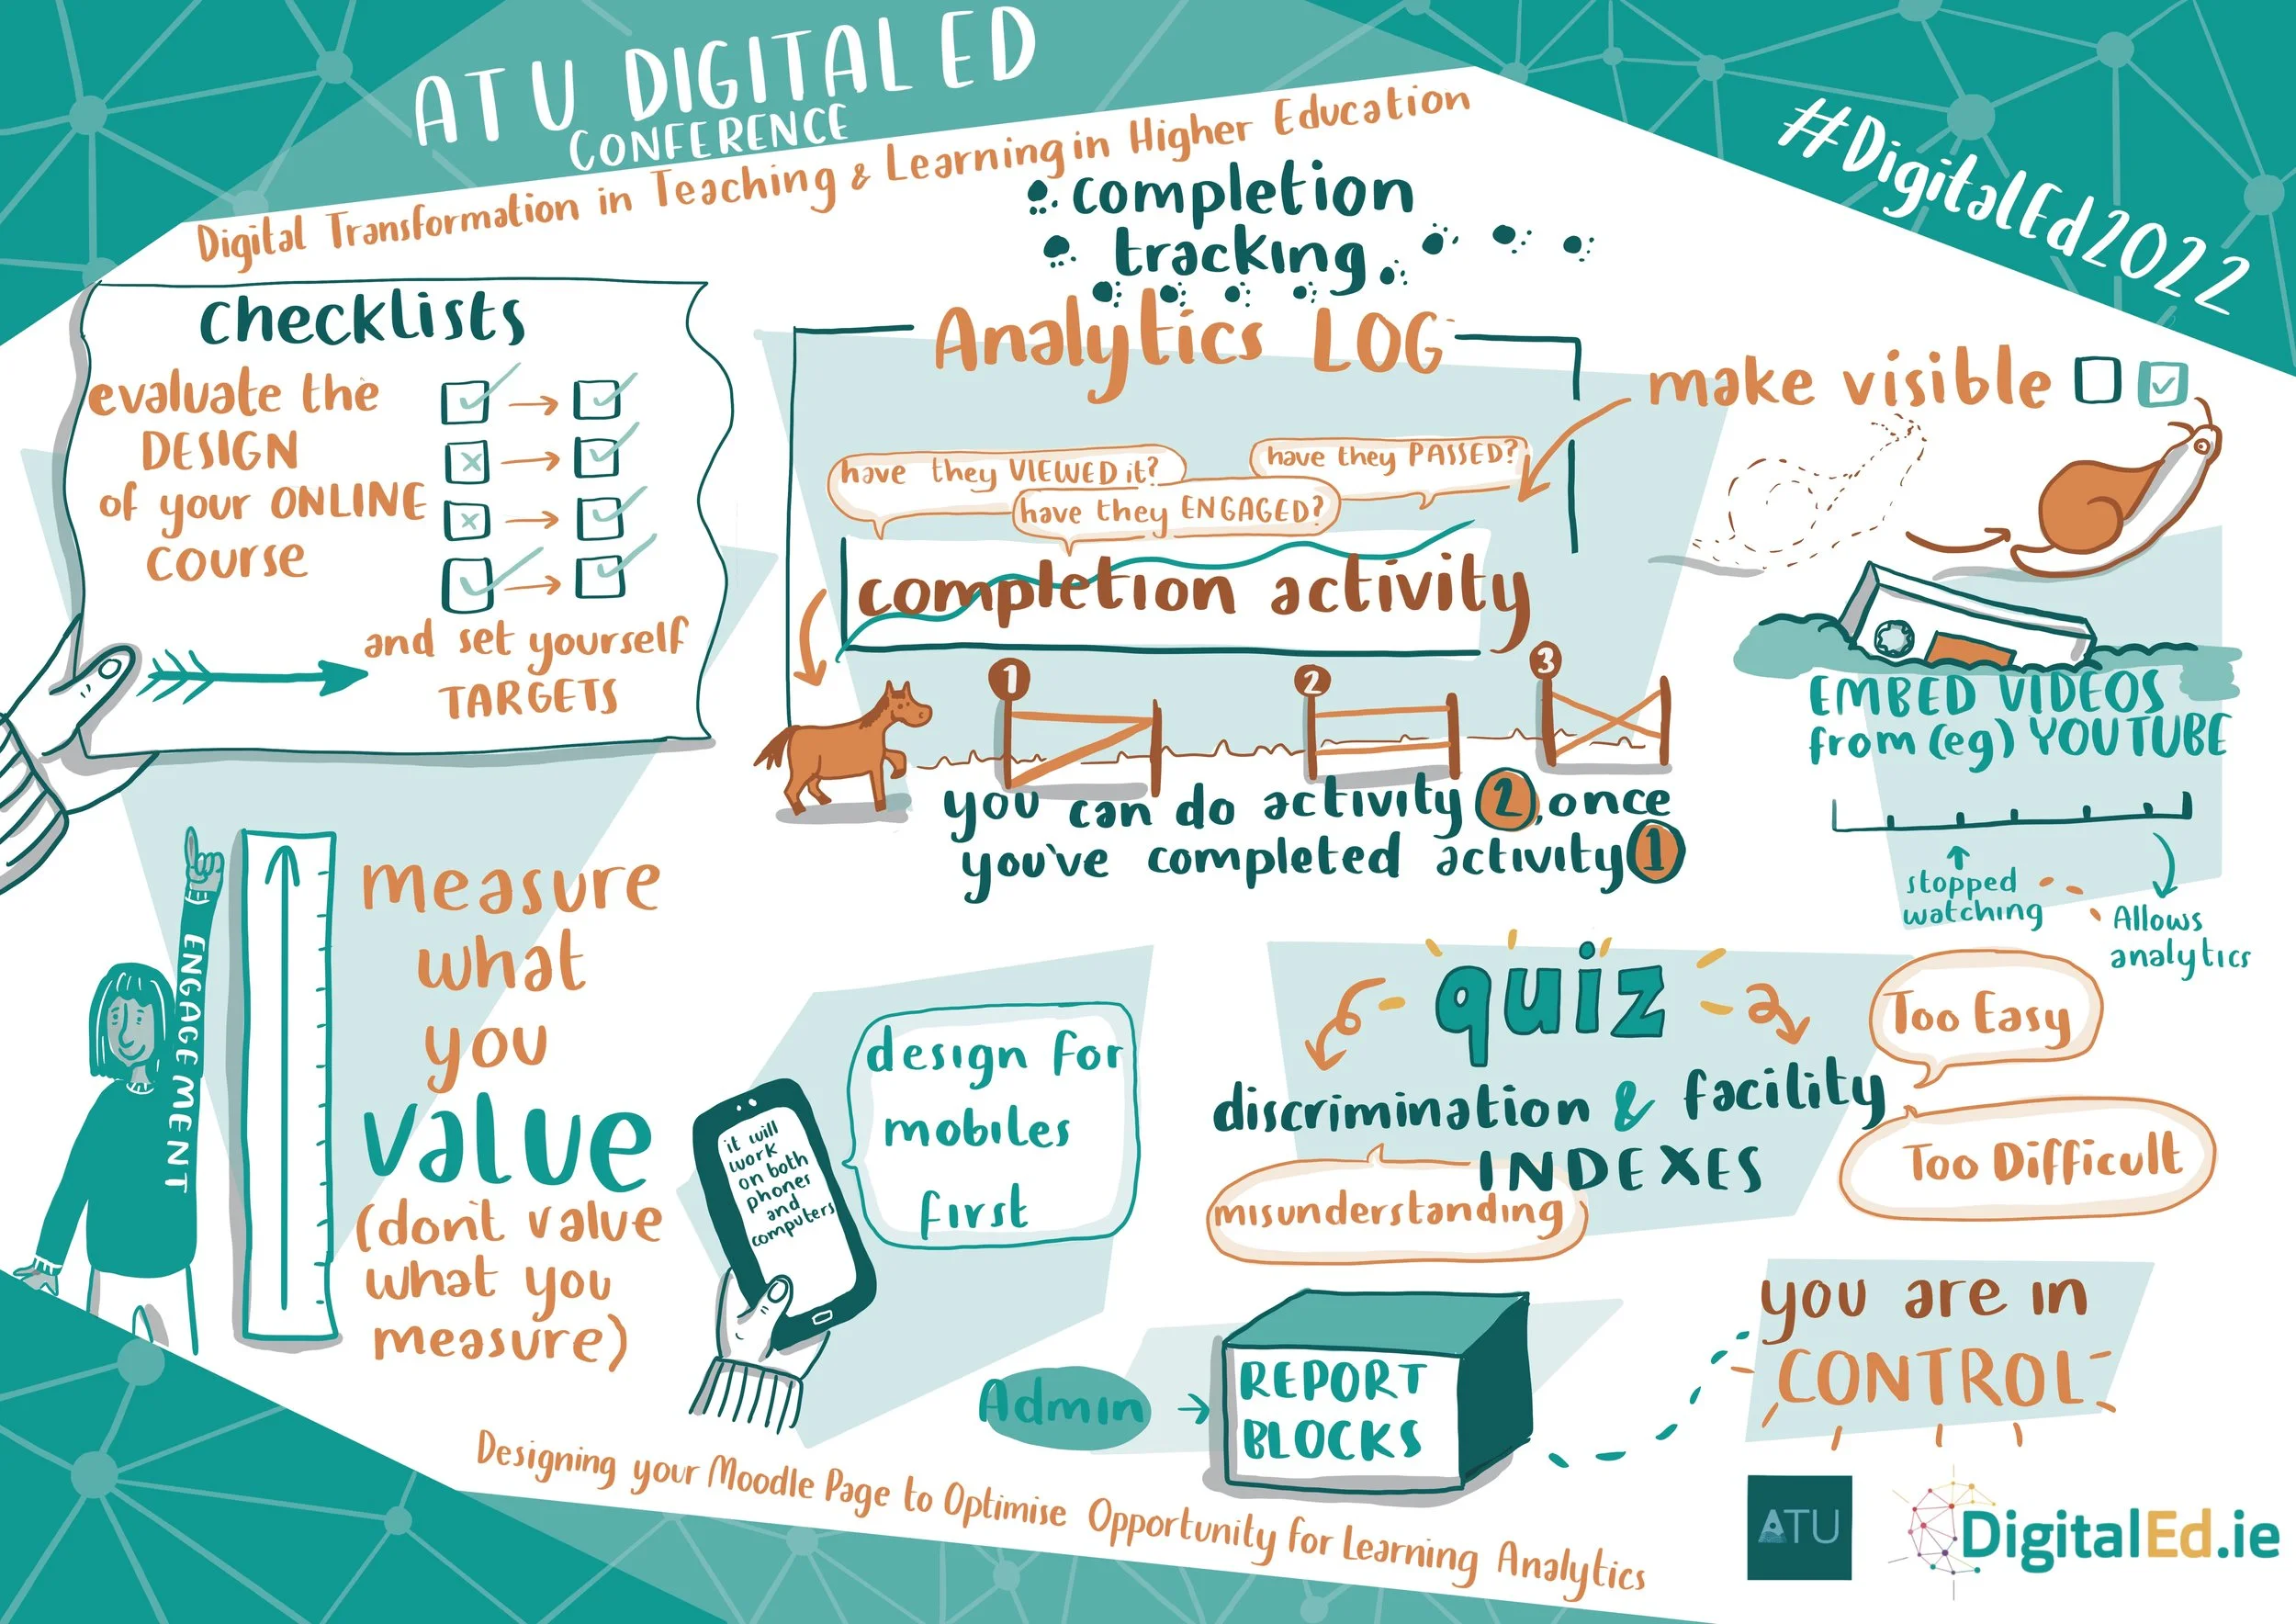 ATU DIGITAL ED
CONFERENCE
Digital Transformation in Teaching & Learning in Higher Education
#DigitalEd2022
checklists
evaluate the
DESIGN
of your ONLINE
course
and set yourself
TARGETS
completion
tracking
Analytics LOG
make visible
have they VIEWED it?
have they PASSED?
have they ENGAGED?
completion activity
1
2
3
you can do activity 2, once
you've completed activity 1
EMBED VIDEOS
from (eg) YOUTUBE
stopped
watching
Allows
analytics
ENGAGEMENT
measure
what
you
value
(don't value
what you
measure)
it will
work
on both
phones
and
computers
design for
mobiles
first
quiz
discrimination & facility
INDEXES
misunderstanding
Too Easy
Too Difficult
Admin
REPORT
BLOCKS
you are in
CONTROL
Designing your Moodle Page to Optimise Opportunity for Learning Analytics
ATU
DigitalEd.ie